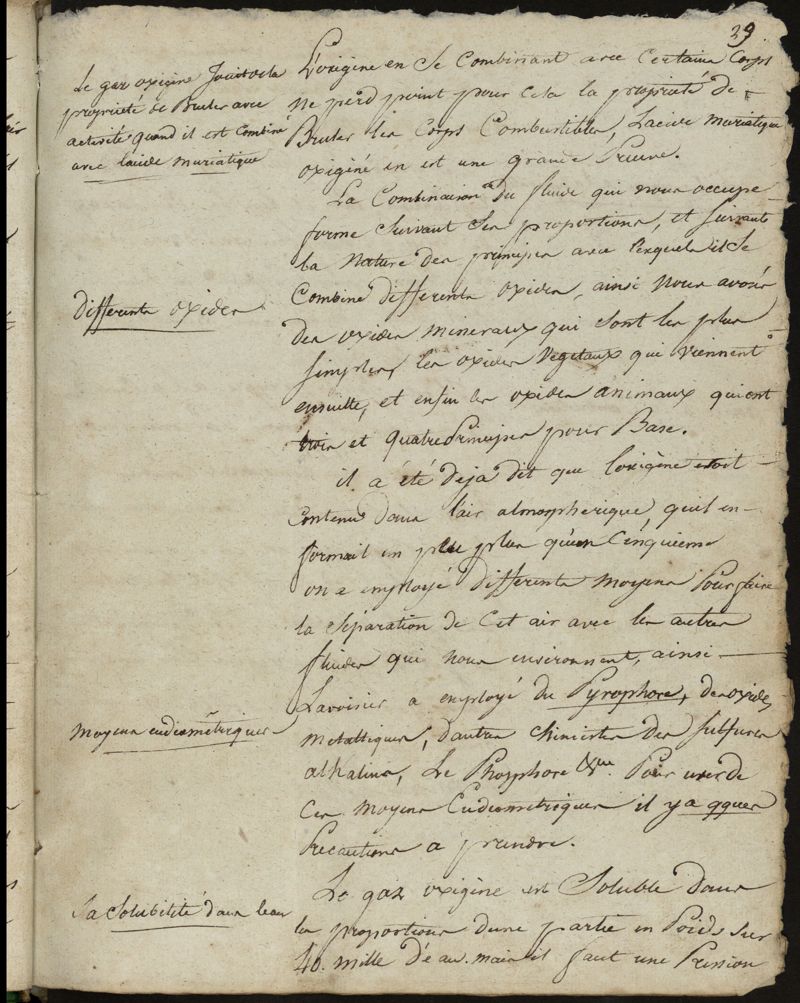 39
Le gaz oxigène Jouit de la
propriété de Bruler avec
activité quand il est Combiné
avec lacide muriatique
L'oxigène en Se Combinant avec Certains Corps
Ne perd point pour Cela la propriété de
Bruler les Corps Combustibles, Lacide muriatique
oxigéné en est une grande Preuve.
La Combinaison du fluide qui nous occupe
forme Suivant Ses proportions, et Suivant
la Nature des principes avec lesquels il Se
Differents oxides
Combine differents oxides, ainsi Nous avons
des oxides mineraux qui Sont les plus
Simples, les oxides Vegetaux qui viennent
ensuitte, et enfin les oxides animaux qui ont
trois et quatre Principes pour Base.
il a été Deja Dit que loxigène etoit
Contenu dans l'air atmospherique, qu'il en
formait un peu plus qu'un Cinquieme
on a employé differents moyens Pour faire
la Séparation de Cet air avec les autres
fluides qui nous environnent, ainsi
Lavoisier a employé du Pyrophore, des oxides
Moyens eudiométriques
métalliques, d'autres Chimistes des Sulfures
alkalins, Le Phosphore &. Pour user de
Ces moyens Eudiometriques il y a qques
Précautions a prendre.
Sa Solubilité dans leau
Le gaz oxigène est Soluble dans
la proportion dune partie en Poids sur
40. mille d'eau. mais il faut une Pression